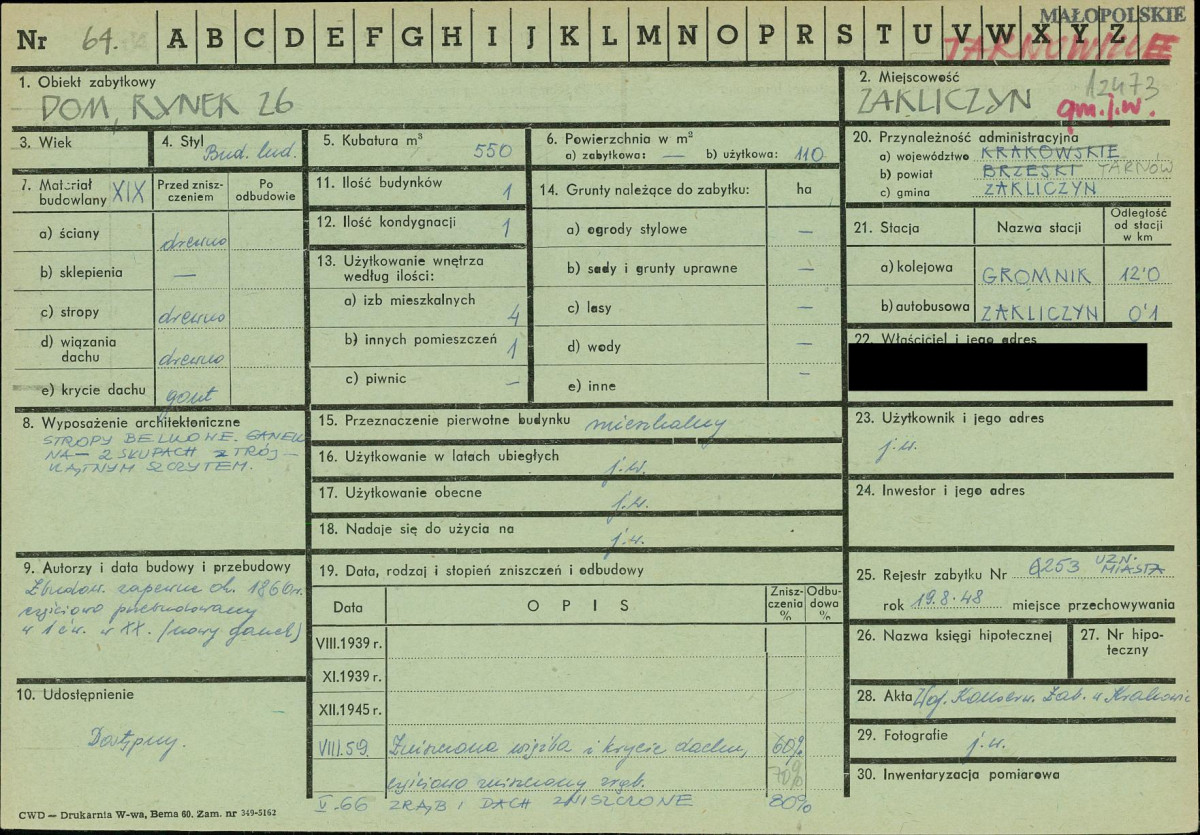 MAŁOPOLSKIE
Nr 64. A B C D E F G H I J K L M N O P R S T U V W X Y Z
1. Obiekt zabytkowy
DOM, RYNEK 26
2. Miejscowość
12473
ZAKLICZYN
gm. j.w.
3. Wiek
XIX
4. Styl Bud. lud.
5. Kubatura m³ 550
6. Powierzchnia w m²
a) zabytkowa: — b) użytkowa: 110
7. Materiał budowlany
Przed zniszczeniem
Po odbudowie
a) ściany drewno
b) sklepienia —
c) stropy drewno
d) wiązania dachu drewno
e) krycie dachu gont
8. Wyposażenie architektoniczne
STROPY BELKOWE. GANEK
NA — 2 SŁUPACH Z TRÓJ-
KĄTNYM SZCZYTEM.
9. Autorzy i data budowy i przebudowy
Zbudow. zapewne ok. 1860 r.
częściowo przebudowany
w 1 ćw. w XX. (nowy ganek)
10. Udostępnienie
Dostępny.
11. Ilość budynków 1
12. Ilość kondygnacji 1
13. Użytkowanie wnętrza
według ilości:
a) izb mieszkalnych 4
b) innych pomieszczeń 1
c) piwnic –
14. Grunty należące do zabytku: ha
a) ogrody stylowe —
b) sady i grunty uprawne —
c) lasy —
d) wody —
e) inne –
15. Przeznaczenie pierwotne budynku mieszkalny
16. Użytkowanie w latach ubiegłych j.w.
17. Użytkowanie obecne j.w.
18. Nadaje się do użycia na j.w.
19. Data, rodzaj i stopień zniszczenia i odbudowy
Data OPIS Zniszczenia % Odbudowa %
VIII.1939 r.
XI.1939 r.
XII.1945 r.
VIII.59. Zniszczona więźba i krycie dachu, 60%
częściowo zniszczony zrąb. 70%
V.66 ZRĄB I DACH ZNISZCZONE 80%
20. Przynależność administracyjna
a) województwo KRAKOWSKIE
b) powiat BRZESKI TARNÓW
c) gmina ZAKLICZYN
21. Stacja Nazwa stacji Odległość od stacji w km
a) kolejowa GROMNIK 12'0
b) autobusowa ZAKLICZYN 0'1
22. Właściciel i jego adres
23. Użytkownik i jego adres
j.w.
24. Inwestor i jego adres
25. Rejestr zabytku Nr 253 UZN. MIASTA
rok 19.8.48 miejsce przechowywania
26. Nazwa księgi hipotecznej
27. Nr hipoteczny
28. Akta Woj. Konserw. Zab. w Krakowie
29. Fotografie j.w.
30. Inwentaryzacja pomiarowa
CWD — Drukarnia W-wa, Bema 60. Zam. nr 349-5162